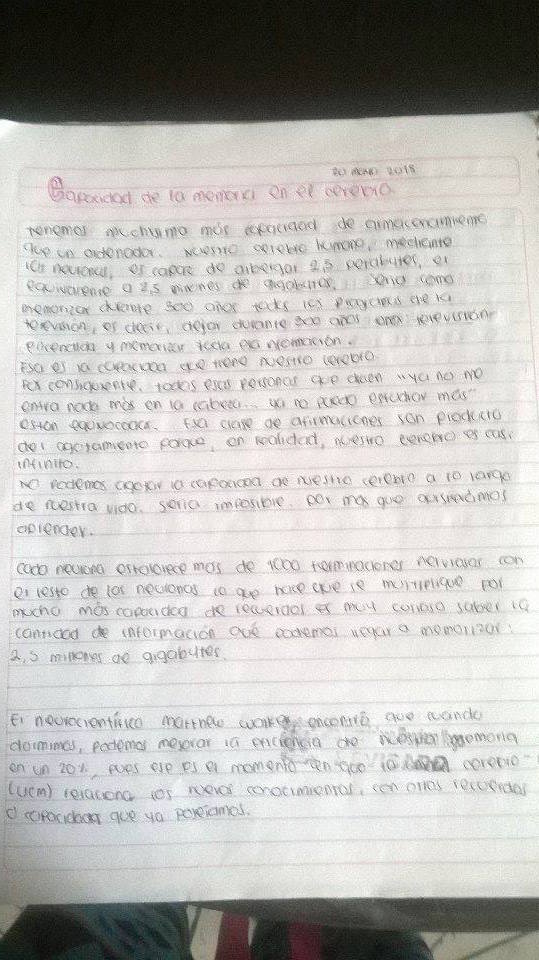 2015
Capacidad de la memoria en el cerebro
Tenemos muchisimo más capacidad de almacenamiento
que un ordenador. Nuestro cerebro humano, mediante
las neuronas, es capaz de albergar 2,5 petabytes, el
equivalente a 2,5 millones de gigabytes. Seria como
memorizar durante 300 años todos los programas de la
television, es decir, dejar durante 300 años una television
encendida y memorizar toda esa información.
Esa es la capacidad que tiene nuestro cerebro.
Por consiguiente, todas esas personas que dicen "ya no me
entra nada más en la cabeza... ya no puedo estudiar más"
están equivocados. Esa clase de afirmaciones son producto
del agotamiento porque, en realidad, nuestro cerebro es casi
infinito.
No podemos agotar la capacidad de nuestro cerebro a lo largo
de nuestra vida. seria imposible. por más que quisieramos
aprender.
Cada neurona establece mas de 1000 terminaciones nerviosas con
el resto de las neuronas lo que hace que se multiplique por
mucho más capacidad de recuerdos es muy curioso saber la
cantidad de información que podemos llegar a memorizar:
2,5 millones de gigabytes.
El neurocientífico Matthew Walker, encontró que cuando
dormimos, podemos mejorar la eficiencia de nuestra memoria
en un 20%, pues ese es el momento en que la cerebro
(UCM) relaciona los nuevos conocimientos, con otros recuerdos
o capacidades que ya poseíamos.